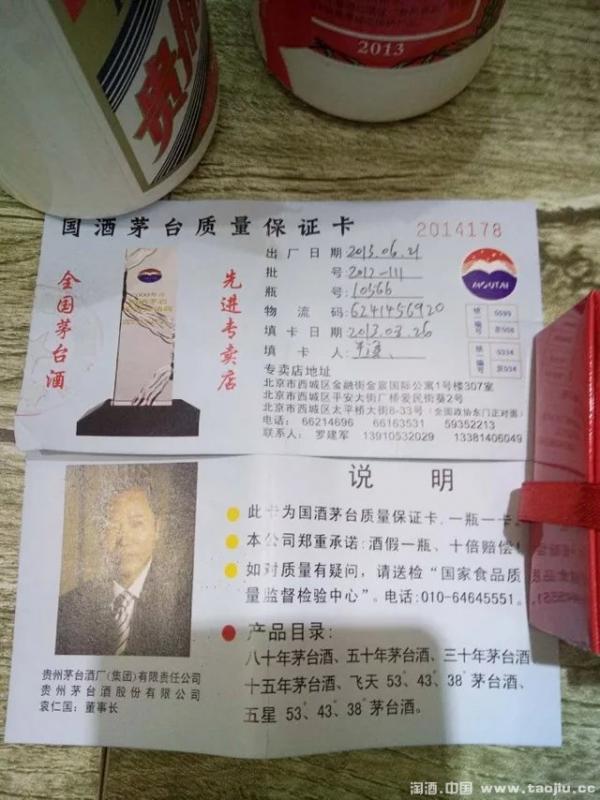 贵州
2013
国酒茅台质量保证卡
2014178
全国茅台酒
先进专卖店
出厂日期:2013.06.21
批 号:2012-111
瓶 号:10566
物流码:6241456920
填卡日期:2013.03.26
填卡人:
MOUTAI
统一编号
0334
京034
专卖店地址
北京市西城区金融街金宸国际公寓1号楼307室
北京市西城区平安大街厂桥爱民街葵2号
北京市西城区太平桥大街8-33号(全国政协东门正对面)
电话: 66214696 66163531 59352213
联系人: 罗建军 13910532029 13381406049
说 明
此卡为国酒茅台质量保证卡,一瓶一卡。
本公司郑重承诺:酒假一瓶、十倍赔偿!
如对质量有疑问,请送检“国家食品质
量监督检验中心”。电话:010-64645551。
产品目录:
八十年茅台酒、五十年茅台酒、三十年茅台酒
十五年茅台酒、飞天 53°、43°、38°茅台酒、
五星 53°、43°、38°茅台酒。
贵州茅台酒厂(集团)有限责任公司
贵州茅台酒股份有限公司
袁仁国:董事长
淘酒.中国 www.taojiu.cc